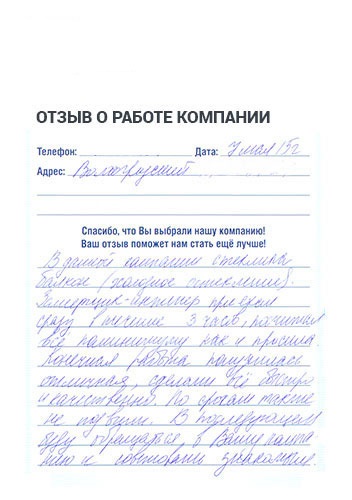 ОТЗЫВ О РАБОТЕ КОМПАНИИ
Телефон: Дата: 7 мая 15г
Адрес: Волгоградский
Спасибо, что Вы выбрали нашу компанию!
Ваш отзыв поможет нам стать ещё лучше!
В данной компании стеклили
балкон (холодное остекление).
Замерщик-инженер приехал
сразу в течение 3 часов, посчитал
всё по минимуму как и просили
конечная работа получилась
отличная, сделали всё быстро
и качественно. По срокам также
не подвели. В последующем
буду обращаться, в Вашу компа
нию и советовать знакомым.